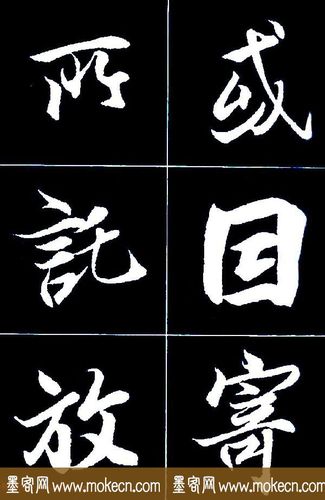 或因寄
所託放
墨客网 www.mokecn.com 墨客网 www.mokecn.com